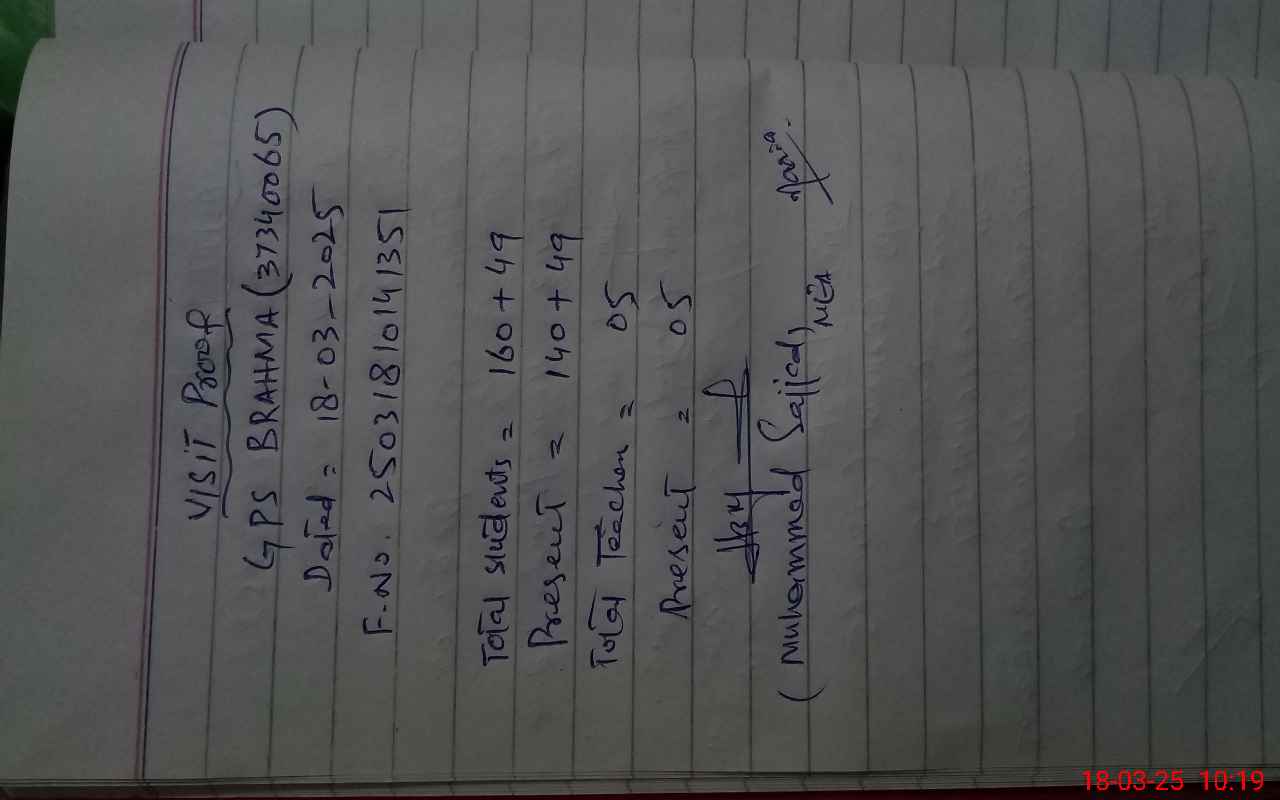 VISIT Proof
GPS BRAHMA (37340065)
Dated = 18-03-2025
F.No. 25031810141351
Total students = 160 + 49
Present = 140 + 49
Total Teacher = 05
Present = 05
(Muhammad Sajjad) MEA
18-03-25 10:19